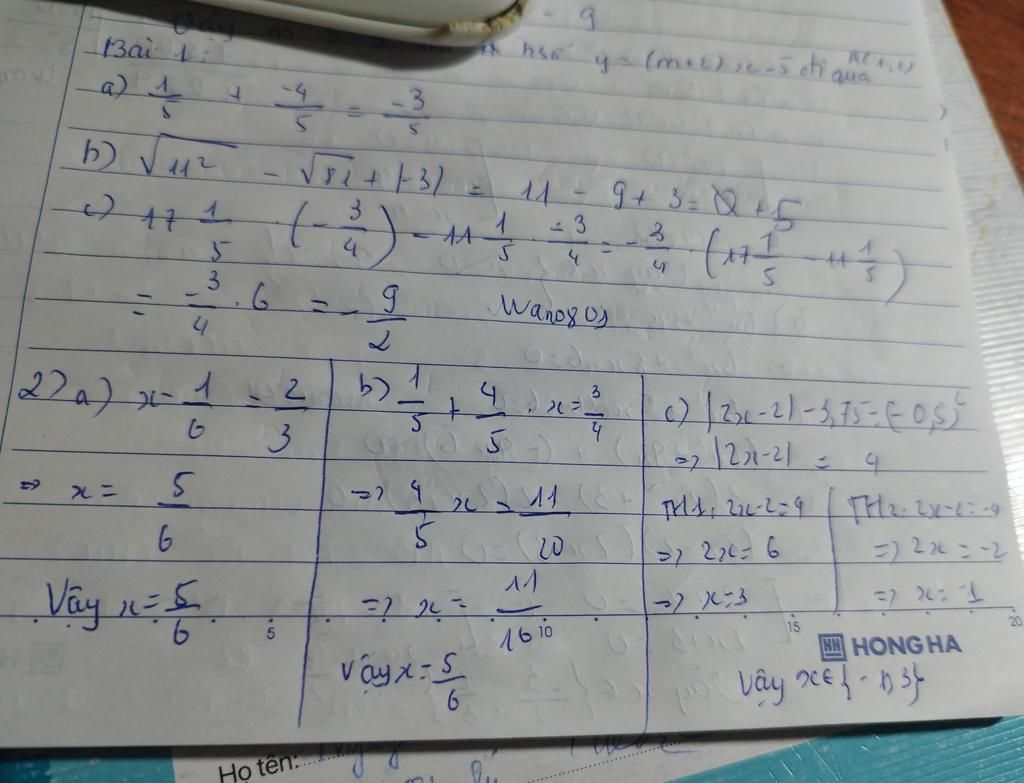 Vậy m = - 9
Bài 1: hsố y = (m+2)x-5 đi qua
a) 1/5 + -4/5 = -3/5
b) √11² - √81 + |-3| = 11 - 9 + 3 = 5
c) 17 1/5 . (-3/4) - 11 1/5 . -3/4 = -3/4 . (17 1/5 - 11 1/5)
= -3/4 . 6 = -9/2
2) a) x - 1/6 = 2/3
⇒ x = 5/6
Vậy x = 5/6
b) 1/5 + 4/5 . x = 3/4
⇒ 4/5 x = 11/20
⇒ x = 11/16
Vậy x = 5/6
c) |2x-2| - 3,75 = (-0,5)²
⇒ |2x-2| = 4
TH1: 2x-2=4
⇒ 2x = 6
⇒ x=3
TH2: 2x-2=-4
⇒ 2x = -2
⇒ x = -1
Vậy x∈{-1;3}
5 10 15 20
HH HONG HA
Họ tên: